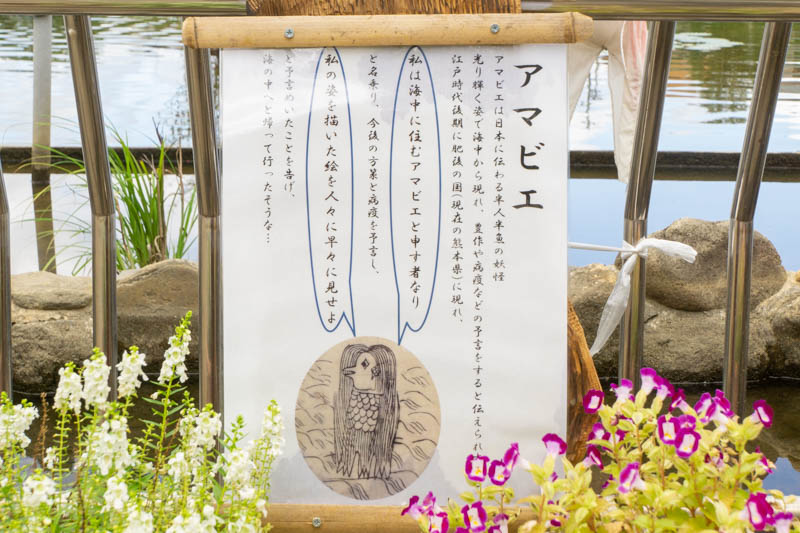 アマビエ
アマビエは日本に伝わる半人半魚の妖怪
光り輝く姿で海中から現れ、豊作や病疫などの予言をすると伝えられ
江戸時代後期に肥後の国(現在の熊本県)に現れ、
私は海中に住むアマビエと申す者なり
と名乗り、今後の方策と病疫を予言し、
私の姿を描いた絵を人々に早々に見せよ
と予言めいたことを告げ、
海の中へと帰って行ったそうな…